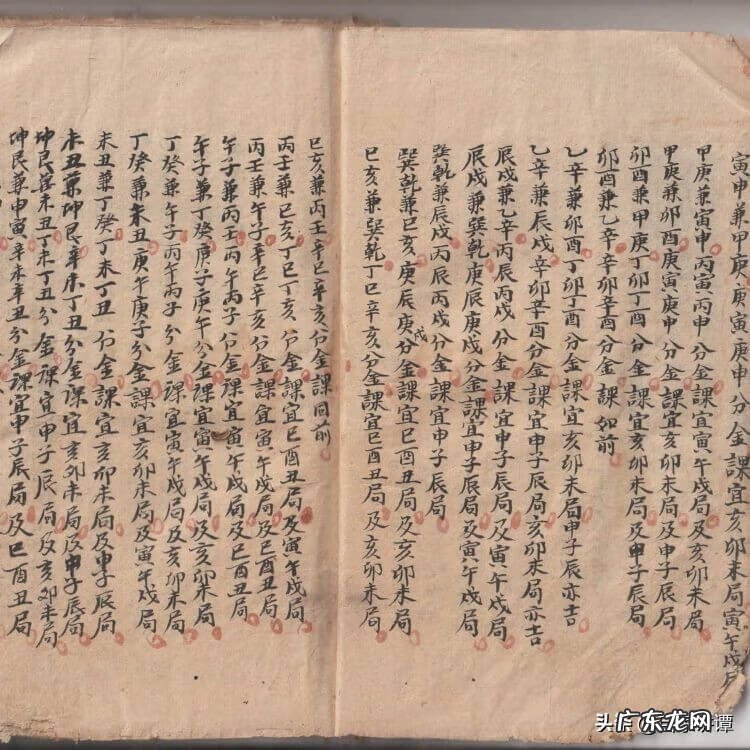 寅申兼甲庚庚寅庚申分金課宜亥卯未局寅午戌局
甲庚兼寅申丙寅丙申分金課宜寅午戌局及亥卯未局
甲庚兼卯酉庚寅庚申分金課宜亥卯未局及申子辰局
卯酉兼甲庚丁卯丁酉分金課宜亥卯未局及申子辰局
卯酉兼乙辛辛卯辛酉分金課如前
乙辛兼卯酉丁卯丁酉分金課宜亥卯未局申子辰亦吉
乙辛兼辰戌辛卯辛酉分金課宜申子辰局亥卯未局亦吉
辰戌兼乙辛丙辰丙戌分金課宜申子辰局及寅午戌局
辰戌兼巽乾庚辰庚戌分金課宜申子辰局及寅午戌局
巽乾兼辰戌丙辰丙戌分金課宜申子辰局
巽乾兼巳亥庚辰庚戌分金課宜巳酉丑局及亥卯未局
巳亥兼巽乾丁巳辛亥分金課宜巳酉丑局及亥卯未局
巳亥兼丙壬辛巳辛亥分金課同前
丙壬兼巳亥丁巳丁亥分金課宜巳酉丑局及寅午戌局
丙壬兼午子辛巳辛亥分金課宜寅午戌局及巳酉丑局
午子兼丙壬丙午丙子分金課宜寅午戌局及巳酉丑局
午子兼丁癸庚子庚午分金課宜寅午戌局及亥卯未局
丁癸兼午子丙午丙子分金課宜寅午戌局及亥卯未局
丁癸兼未丑庚午庚子分金課宜亥卯未局及寅午戌局
未丑兼丁癸丁未丁丑分金課宜亥卯未局及申子辰局
未丑兼坤艮辛未丁丑分金課宜亥卯未局及申子辰局
坤艮兼未丑丁未丁丑分金課宜申子辰局及亥卯未局
坤艮兼申寅辛未辛丑分金課宜申子辰局及巳酉丑局
头 广东龙网 谭